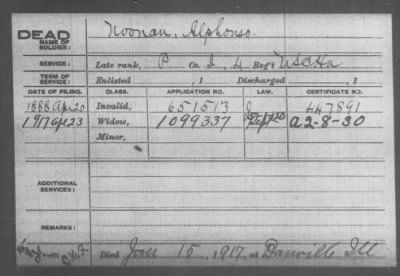 DEAD
NAME OF SOLDIER: Noonan, Alphonso.
SERVICE: Late rank, P Co. I, 4 Reg't USCHa
TERM OF SERVICE: Enlisted , 1 Discharged , 1
DATE OF FILING. CLASS. APPLICATION NO. LAW. CERTIFICATE NO.
1888 Apr 20 Invalid, 651513 447891
1917 Apr 23 Widow, 1099337 Sept a 2-8-30
Minor,
ADDITIONAL SERVICES:
REMARKS:
Died Jan 15, 1917, at Danville Ill